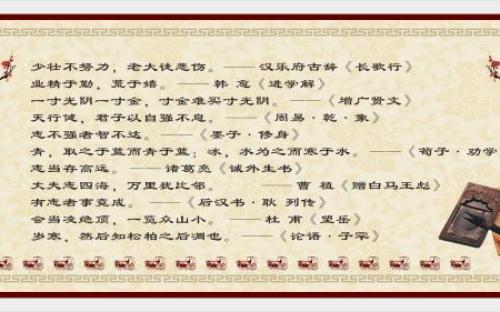 少壮不努力，老大徒悲伤。——汉乐府古辞《长歌行》
业精于勤，荒于嬉。——韩 愈《进学解》
一寸光阴一寸金，寸金难买寸光阴。——《增广贤文》
天行健，君子以自强不息。——《周易·乾·象》
志不强者智不达。——《墨子·修身》
青，取之于蓝而青于蓝；冰，水为之而寒于水。——《荀子·劝学
志当存高远。——诸葛亮《诫外生书》
丈夫志四海，万里犹比邻。——曹 植《赠白马王彪》
有志者事竟成。——《后汉书·耿 列传》
会当凌绝顶，一览众山小。——杜 甫《望岳》
岁寒，然后知松柏之后凋也。——《论语·子罕》